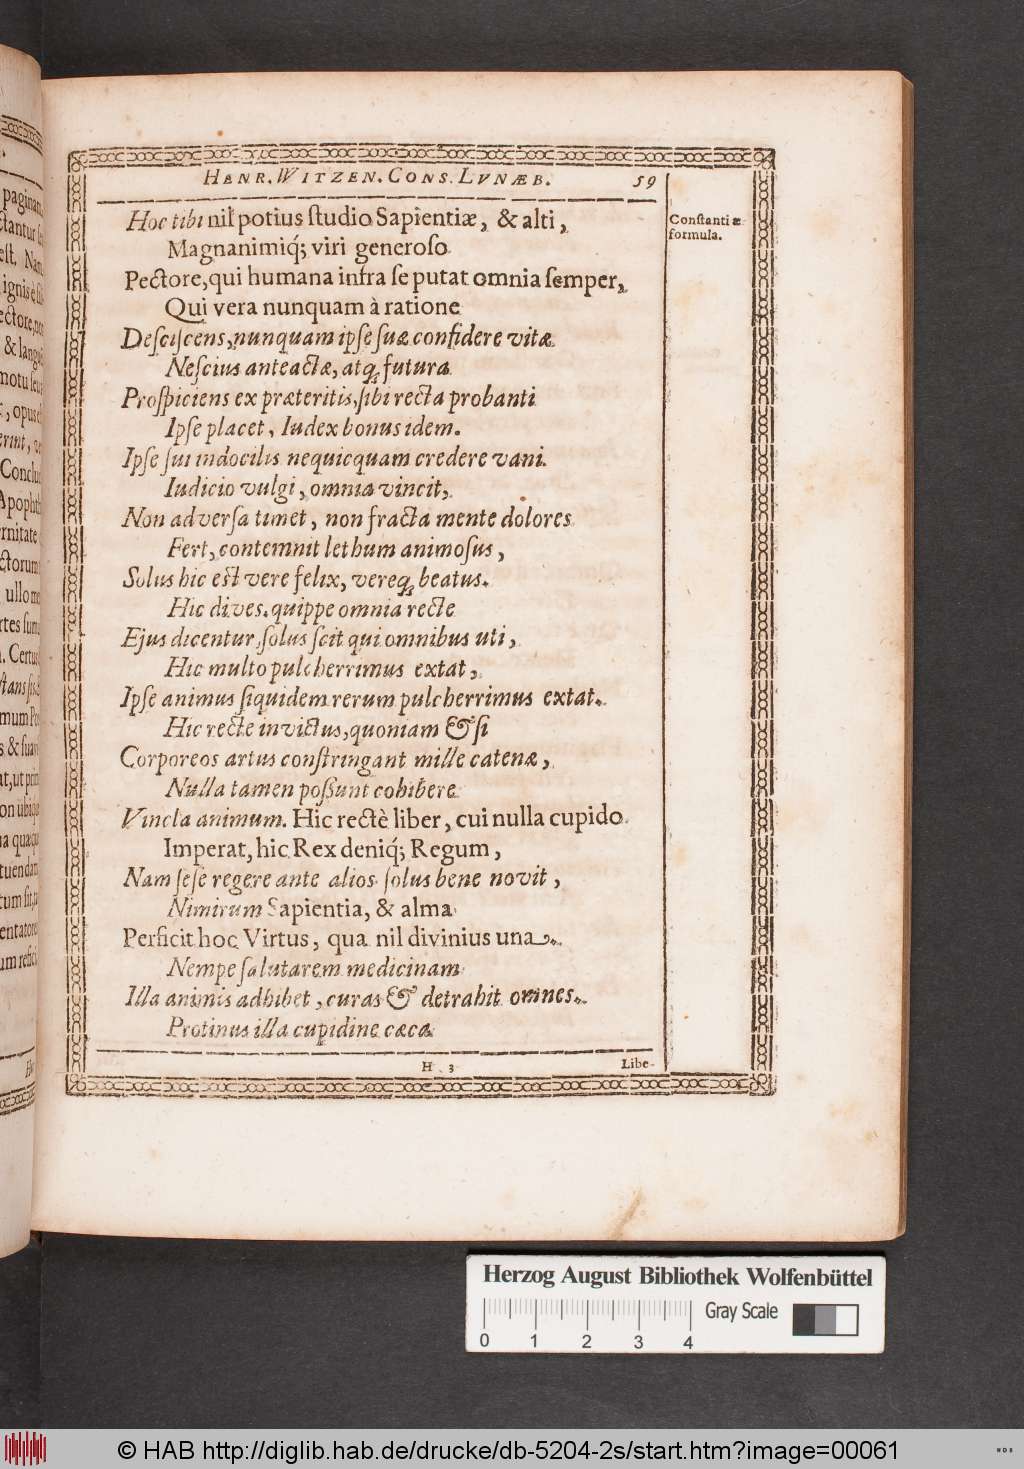 HENR. WITZEN. CONS. LVNÆB. 59
Constantiæ
formula.
Hoc tibi nil potius ſtudio Sapientiæ, & alti,
Magnanimiq́; viri generoſo
Pectore, qui humana infra ſe putat omnia ſemper,
Qui vera nunquam à ratione
Deſciſcens, nunquam ipſe ſuæ confidere vitæ
Neſcius anteactæ, atq; futura
Proſpiciens ex præteritis, ſibi recta probanti
Ipſe placet, Iudex bonus idem.
Ipſe ſui indocilis nequicquam credere vani
Iudicio vulgi, omnia vincit,
Non adverſa timet, non fracta mente dolores
Fert, contemnit lethum animoſus,
Solus hic eſt vere felix, vereq; beatus.
Hic dives. quippe omnia recte
Ejus dicentur, ſolus ſcit qui omnibus uti,
Hic multo pulcherrimus extat,
Ipſe animus ſiquidem rerum pulcherrimus extat.
Hic recte invictus, quoniam & ſi
Corporeos artus conſtringant mille catenæ,
Nulla tamen poſſunt cohibere
Vincla animum. Hic rectè liber, cui nulla cupido
Imperat, hic Rex deniq́; Regum,
Nam ſeſe regere ante alios ſolus bene novit,
Nimirum Sapientia, & alma
Perficit hoc Virtus, qua nil divinius una.
Nempe ſalutarem medicinam
Illa animis adhibet, curas & detrahit omnes.
Protinus illa cupidine cæca
H 3 Libe-
paginam
ctantur
eſt. Nam
ignis è
ectore,
& langu
motu
, opus
erint,
Conclu
Apophth
rnitate
ctorum
ullo mo
rtes ſum
. Certus
ſtans ſis
mum
s & ſuav
at, ut prin
on ubiq
na
tuendam
tum ſit,
entatore
um refici
Herzog August Bibliothek Wolfenbüttel
0 1 2 3 4
Gray Scale
© HAB http://diglib.hab.de/drucke/db-5204-2s/start.htm?image=00061